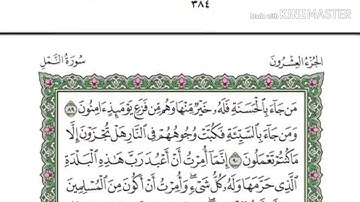 ٣٨٤
Made with KINEMASTER
سُورَةُ النَّمْلِ
الجُزْءُ العِشْرُونَ
مَن جَآءَ بِٱلْحَسَنَةِ فَلَهُۥ خَيْرٌ مِّنْهَا وَهُم مِّن فَزَعٍ يَوْمَئِذٍ ءَامِنُونَ ٨٩
وَمَن جَآءَ بِٱلسَّيِّئَةِ فَكُبَّتْ وُجُوهُهُمْ فِى ٱلنَّارِ هَلْ تُجْزَوْنَ إِلَّا
مَا كُنتُمْ تَعْمَلُونَ ٩٠ إِنَّمَآ أُمِرْتُ أَنْ أَعْبُدَ رَبَّ هَٰذِهِ ٱلْبَلْدَةِ
ٱلَّذِى حَرَّمَهَا وَلَهُۥ كُلُّ شَىْءٍ وَأُمِرْتُ أَنْ أَكُونَ مِنَ ٱلْمُسْلِمِينَ